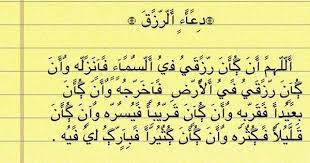 ۞ دِعَأَءِ أَلْرِّزْقَ ۞
أَللَّهمِّ أَنَ كَأَنَ رِزْقَيَ فَيُ أَلسَّمَأَءِ فَأَنزَلَه وُأَنَ
كَأَنَ رِزْقَيَ فَيَ أَلأَرْضَ فَأَخرَجُه وُأَنَ كَأَنَ
بَعيدَاً فَقَرِّبَه وُأَنَ كَأَنَ قَرِيبَاً فَيَسِّرَه وُأَنَ كَأَنَ
قَلَيلَاً فَكَثِّرَه وُأَنَ كَأَنَ كَثُيرَاً فَبِارَكَ لَيَ فَيُه